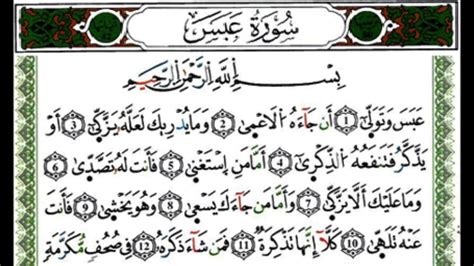 سُورَةُ عَبَسَ
بِسْمِ اللَّهِ الرَّحْمَٰنِ الرَّحِيمِ
عَبَسَ وَتَوَلَّىٰ ١ أَن جَآءَهُ الْأَعْمَىٰ ٢ وَمَا يُدْرِيكَ لَعَلَّهُ يَزَّكَّىٰ ٣ أَوْ
يَذَّكَّرُ فَتَنفَعَهُ الذِّكْرَىٰ ٤ أَمَّا مَنِ اسْتَغْنَىٰ ٥ فَأَنتَ لَهُ تَصَدَّىٰ ٦
وَمَا عَلَيْكَ أَلَّا يَزَّكَّىٰ ٧ وَأَمَّا مَن جَآءَكَ يَسْعَىٰ ٨ وَهُوَ يَخْشَىٰ ٩ فَأَنتَ
عَنْهُ تَلَهَّىٰ ١٠ كَلَّآ إِنَّهَا تَذْكِرَةٌ ١١ فَمَن شَآءَ ذَكَرَهُ ١٢ فِي صُحُفٍ مُّكَرَّمَةٍ